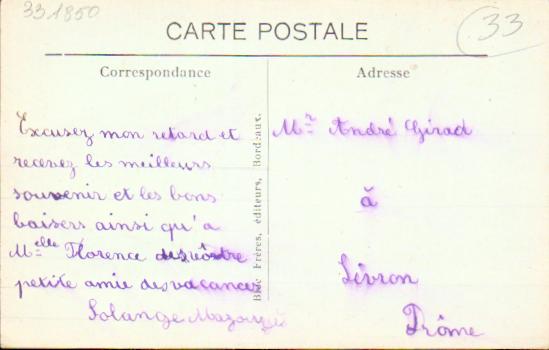 33 1850
33
CARTE POSTALE
Correspondance
Adresse
Excusez mon retard et
recevez les meilleurs
souvenir et les bons
baisers ainsi qu'a
Melle Florence
petite amie des vacances
Solange
Frères, éditeurs, Bordeaux.
Mr André Girad
à
Livron
Drôme